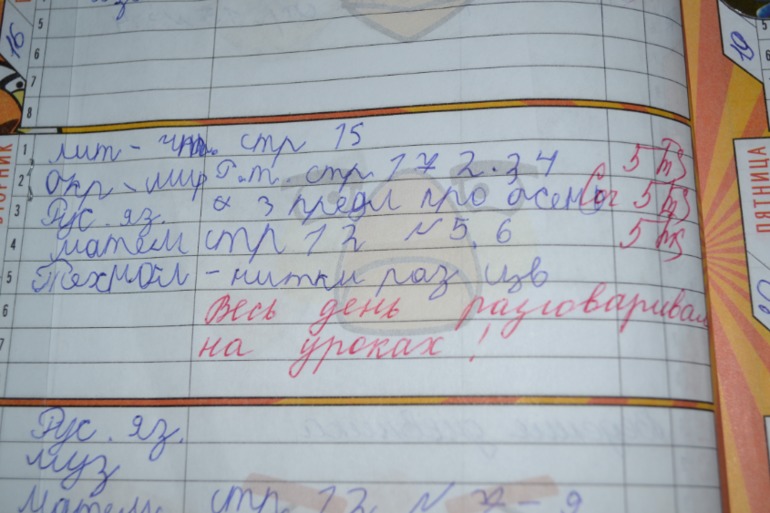 16
5
6
7
8
19
5
6
ВТОРНИК
ПЯТНИЦА
1 лит - чт. стр 15
2 Окр. мир Р.т. стр 17 2.3,4 5
3 Рус. яз. 3 предл про осень Соч 5
4 матем стр 12 №5, 6 5
5 Технол - нитки раз цв
6 Весь день разговаривал
7 на уроках!
Рус. яз.
муз
Матем стр 12 № 7-9